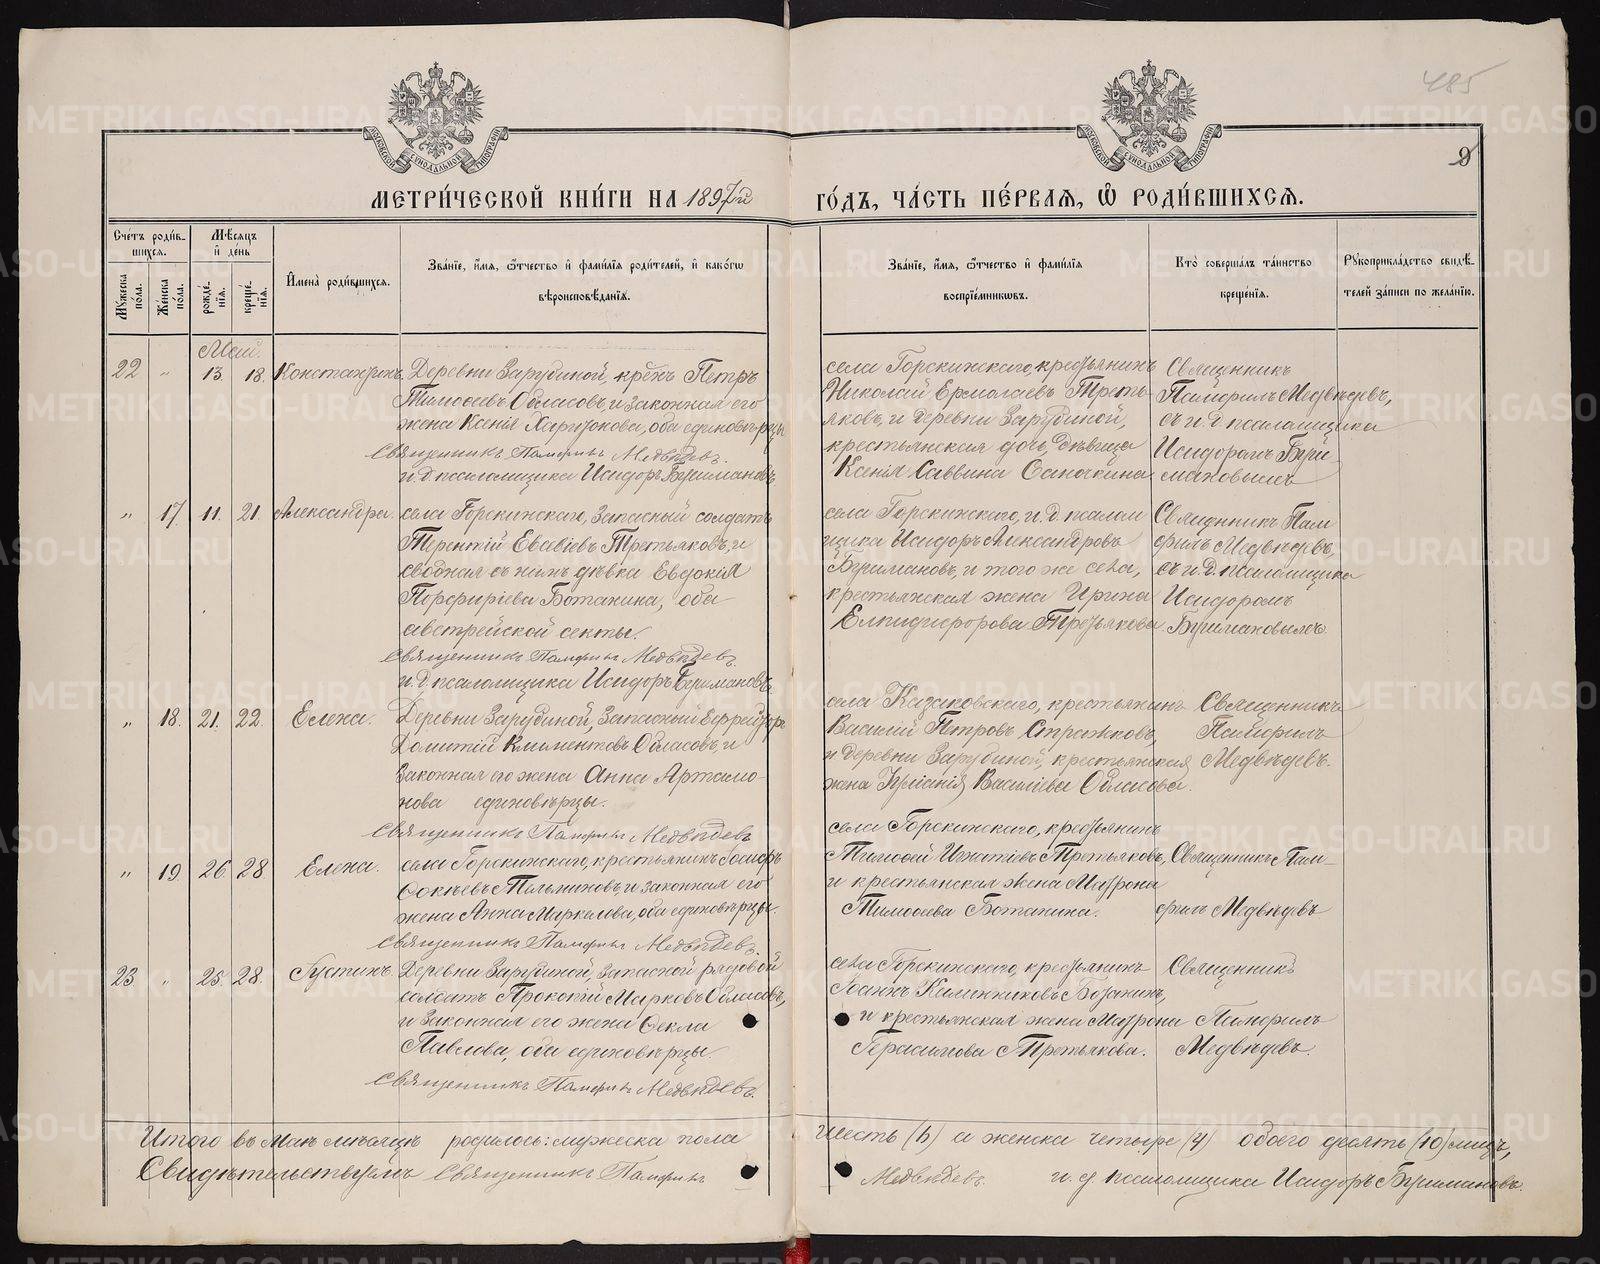 485
9
МЕТРИ́ЧЕСКОЙ КНИ́ГИ НА 1897й ГО́ДЪ, ЧА́СТЬ ПЕ́РВАЯ, Ѽ РОДИ́ВШИХСЯ.
Сче́тъ роди́в-
шихся.
Мѣ́сяцъ
и҆ де́нь
Му́жеска
по́ла.
Же́нска
по́ла.
рожде́-
нія.
креще́-
нія.
И҆мена̀ роди́вшихся.
Зва́ніе, и҆́мя, ѻ҆́тчество и҆ фами́лія роди́телей, и҆ како́гѡ
вѣроисповѣ́данія.
Зва́ніе, и҆́мя, ѻ҆́тчество и҆ фами́лія
воспріе́мникѡвъ.
Кто̀ соверша́лъ та́инство
креще́нія.
Рꙋкоприкла́дство свидѣ́-
телей за́писи по жела́нію.
Май.
22 „ 13. 18. Константинъ.
Деревни Зарудиной, крѣнъ Петръ
Тимоѳеевъ Обласовъ, и законная его
жена Ксенія Харитонова, оба единовѣрцы
Священникъ Памфилъ Медвѣдевъ.
и. д. псаломщика Исидоръ Бурмановъ
села Горскинскаго, крестьянинъ
Николай Ермолаевъ Треть-
яковъ, и деревни Зарудиной,
крестьянская дочь, дѣвица
Ксенія Саввина Осточкина
Священникъ
Памфилъ Медвѣдевъ,
съ и. д. псаломщика
Исидоромъ Бури-
мановымъ
„ 17 11. 21. Александра.
села Горскинскаго, запасный солдатъ
Терентій Евсевіевъ Третьяковъ, и
сводная съ нимъ дѣвка Евдокія
Порфиріева Ботанина, оба
австрейской секты.
Священникъ Памфилъ Медвѣдевъ.
и. д. псаломщика Исидоръ Буримановъ
села Горскинскаго, и. д. псалом
щика Исидоръ Александровъ
Буримановъ, и того же села,
крестьянская жена Ирина
Елпидифорова Третьякова
Священникъ Пам
филъ Медвѣдевъ,
съ и. д. псаломщика
Исидоромъ
Буримановымъ
„ 18. 21. 22. Елена.
Деревни Зарудиной, запасный Ефрейторъ
Домитій Климентовъ Обласовъ, и
законная его жена Анна Артамо-
нова единовѣрцы.
Священникъ Памфилъ Медвѣдевъ
села Казаковскаго, крестьянинъ
Василій Петровъ Стражковъ,
и деревни Зарудиной, крестьянская
жена Васильева Обласова.
Священникъ
Памфилъ
Медвѣдевъ.
„ 19 26 28 Елена.
села Горскинскаго, крестьянинъ
жена Анна Маркелова, оба единовѣрцы.
Священникъ Памфилъ Медвѣдевъ.
села Горскинскаго, крестьянинъ
Тимоѳей Игнатіевъ Третьяковъ,
и крестьянская жена Матрона
Тимоѳеева Ботанина.
Священникъ Пам-
филъ Медвѣдевъ
23. „ 25. 28. Іустинъ.
Деревни Зарудиной, запасной рядовой
солдатъ Прокопій Марковъ Обласовъ,
и законная его жена Ѳекла
Павлова, оба единовѣрцы
Священникъ Памфилъ Медвѣдевъ.
села Горскинскаго, крестьянинъ
Іоаннъ Калинниковъ Ботанинъ,
и крестьянская жена Матрона
Герасимова Третьякова.
Священникъ
Памфилъ
Медвѣдевъ.
Итого въ Маѣ мѣсяцѣ родилось: мужеска пола шесть (6) а женска четыре (4) обоего десять (10) лицъ,
Свидѣтельствуемъ Священникъ Памфилъ Медвѣдевъ. и. д. псаломщика Исидоръ Буримановъ.
METRIKI.GASO-URAL.RU